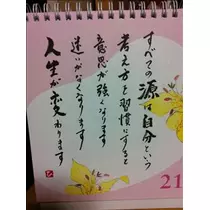 すべての源は自分という
考え方を習慣にすると
意思が強くなります
迷いがなくなります
人生が変わります
21